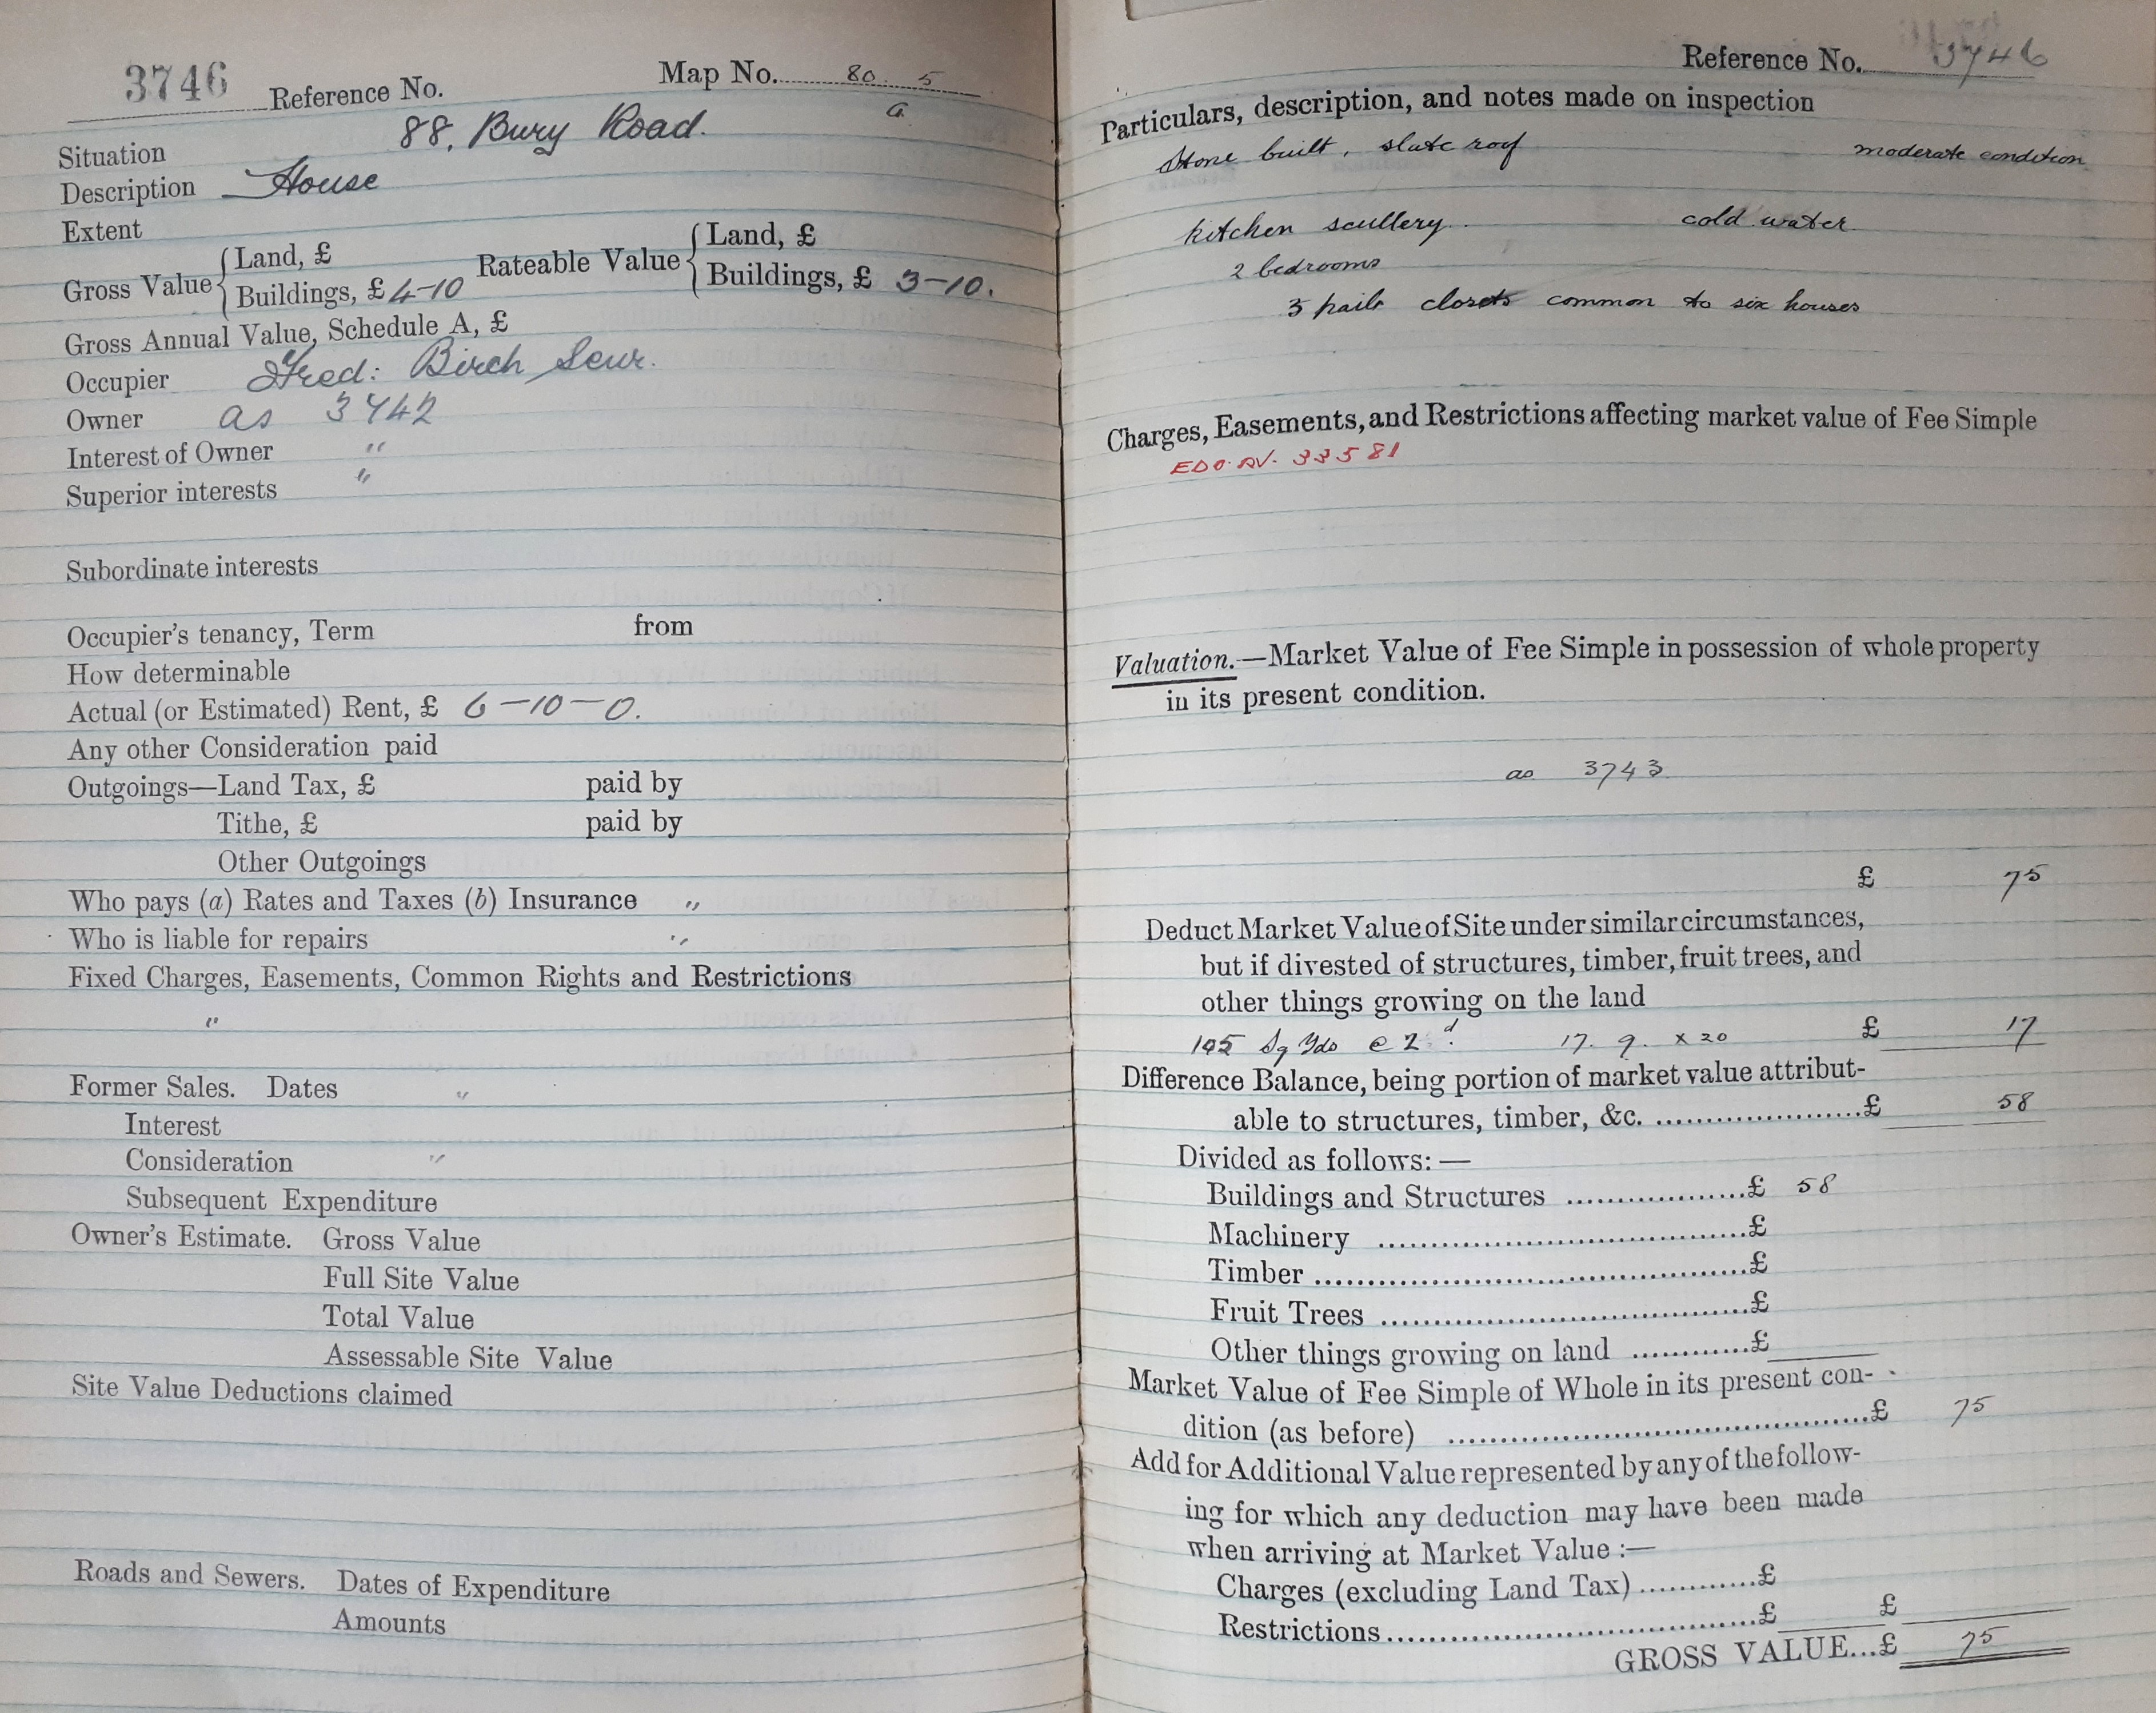 3746 Reference No. Map No. 80. 5
a
Situation 88, Bury Road.
Description House
Extent
Gross Value { Land, £ Rateable Value { Land, £
Buildings, £ 4-10 Buildings, £ 3-10.
Gross Annual Value, Schedule A, £
Occupier Fred: Birch Senr.
Owner as 3742
Interest of Owner "
Superior interests "
Subordinate interests
Occupier's tenancy, Term from
How determinable
Actual (or Estimated) Rent, £ 6-10-0.
Any other Consideration paid
Outgoings—Land Tax, £ paid by
Tithe, £ paid by
Other Outgoings
Who pays (a) Rates and Taxes (b) Insurance "
Who is liable for repairs "
Fixed Charges, Easements, Common Rights and Restrictions
"
Former Sales. Dates "
Interest
Consideration "
Subsequent Expenditure
Owner's Estimate. Gross Value
Full Site Value
Total Value
Assessable Site Value
Site Value Deductions claimed
Roads and Sewers. Dates of Expenditure
Amounts
Reference No. 3746
Particulars, description, and notes made on inspection
Stone built, slate roof moderate condition
kitchen scullery. cold water
2 bedrooms
3 pail closets common to six houses
Charges, Easements, and Restrictions affecting market value of Fee Simple
33581
Valuation.—Market Value of Fee Simple in possession of whole property
in its present condition.
as 3743
£ 75
Deduct Market Value of Site under similar circumstances,
but if divested of structures, timber, fruit trees, and
other things growing on the land
105 Sq Yds @ 2d 17. 9. x 20 £ 17
Difference Balance, being portion of market value attribut-
able to structures, timber, &c. ....................£ 58
Divided as follows:—
Buildings and Structures ..................£ 58
Machinery ....................................£
Timber ..........................................£
Fruit Trees ....................................£
Other things growing on land ............£
Market Value of Fee Simple of Whole in its present con-
dition (as before) .........................................£ 75
Add for Additional Value represented by any of the follow-
ing for which any deduction may have been made
when arriving at Market Value :—
Charges (excluding Land Tax)............£
Restrictions....................................£ £
GROSS VALUE...£ 75